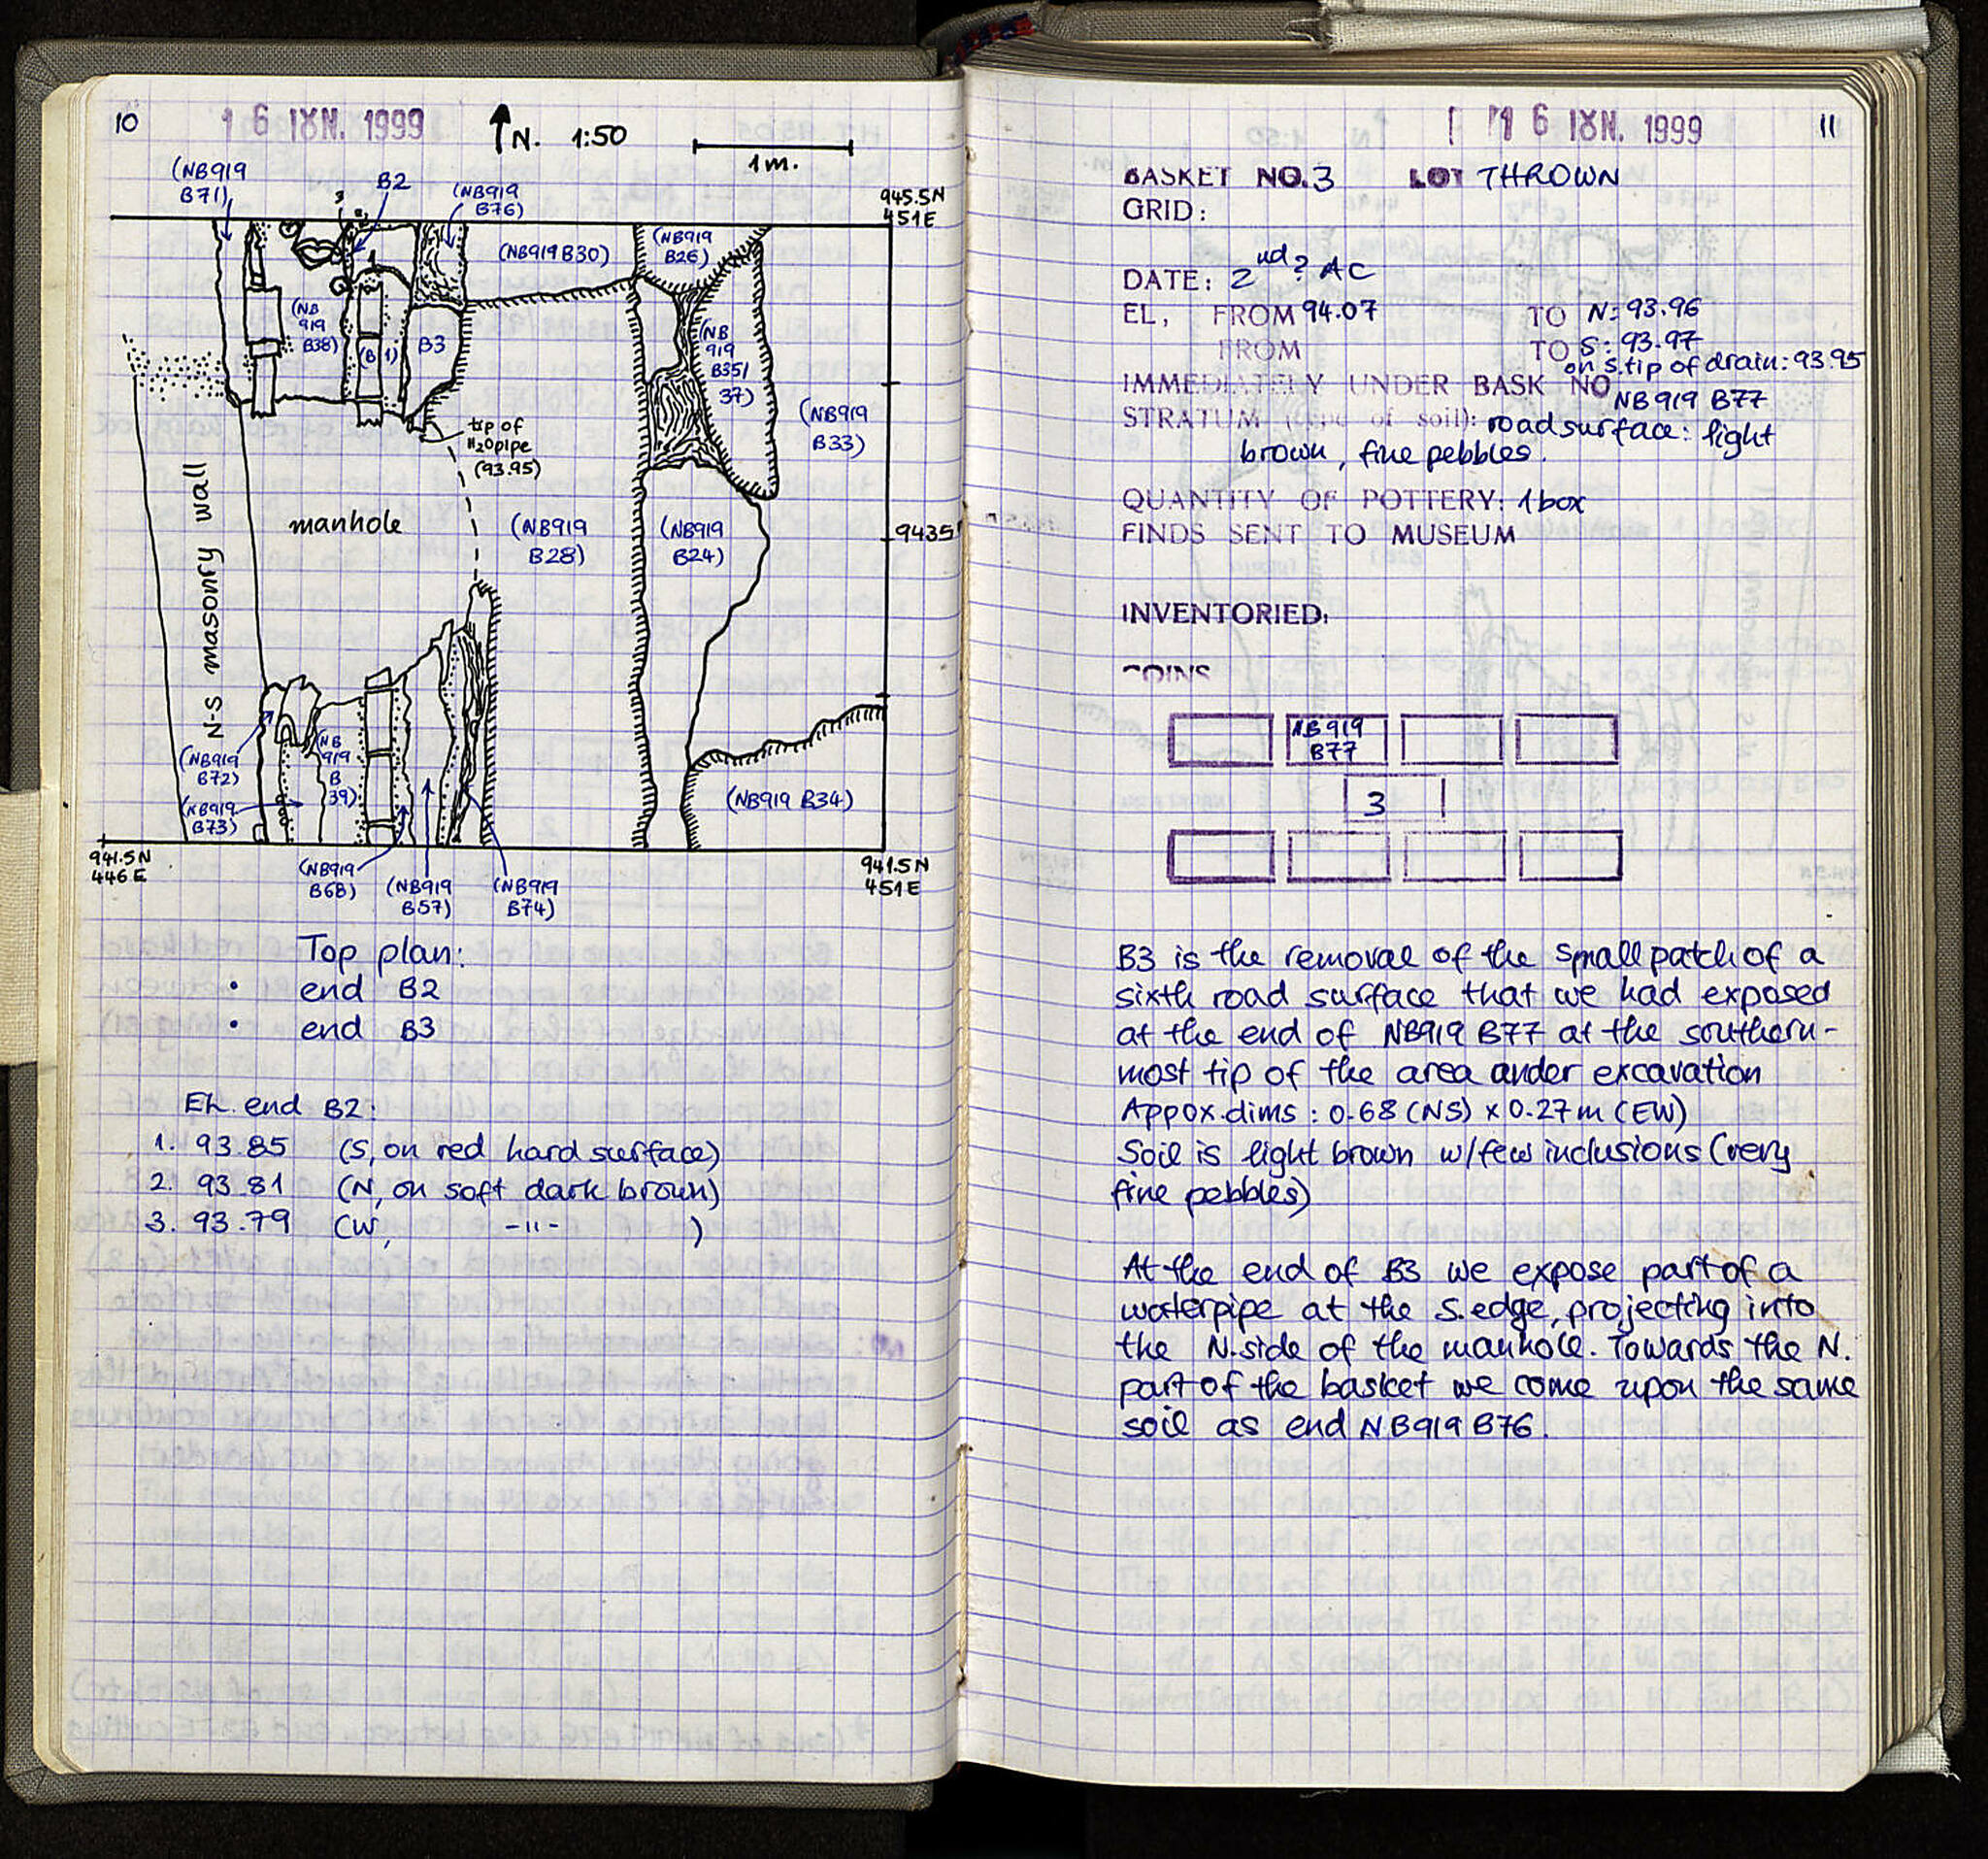 10
16 ΙΟΥΝ. 1999
N. 1:50
1m.
(NB919
B71)
3
B2
(NB919
B76)
945.5N
451E
(NB919 B30)
(NB919
B26)
(NB
919
B38)
(B1)
B3
(NB
919
B35/
37)
(NB919
B33)
tip of
H20pipe
(93.95)
N-S masonry wall
manhole
(NB919
B28)
(NB919
B24)
9435
(NB919
B72)
(NB919
B73)
(NB
919
B
39)
(NB919 B34)
941.5N
446E
(NB919
B68)
(NB919
B57)
(NB919
B74)
941.5N
451E
Top plan:
• end B2
• end B3
EL. end B2:
1. 93.85 (S, on red hard surface)
2. 93.81 (N, on soft dark brown)
3. 93.79 (W, -"- )
16 ΙΟΥΝ. 1999
11
BASKET NO. 3 LOT THROWN
GRID:
DATE: 2nd? AC
EL, FROM 94.07 TO N: 93.96
FROM TO S: 93.97
on S. tip of drain: 93.95
IMMEDIATELY UNDER BASK NO NB919 B77
STRATUM (type of soil): road surface: light
brown, fine pebbles.
QUANTITY OF POTTERY: 1 box
FINDS SENT TO MUSEUM
INVENTORIED:
COINS
NB919
B77
3
B3 is the removal of the small patch of a
sixth road surface that we had exposed
at the end of NB919 B77 at the southern-
most tip of the area under excavation
Appox. dims: 0.68 (NS) x 0.27m (EW)
Soil is light brown w/few inclusions (very
fine pebbles)
At the end of B3 we expose part of a
waterpipe at the S. edge, projecting into
the N. side of the manhole. Towards the N.
part of the basket we come upon the same
soil as end NB919 B76.